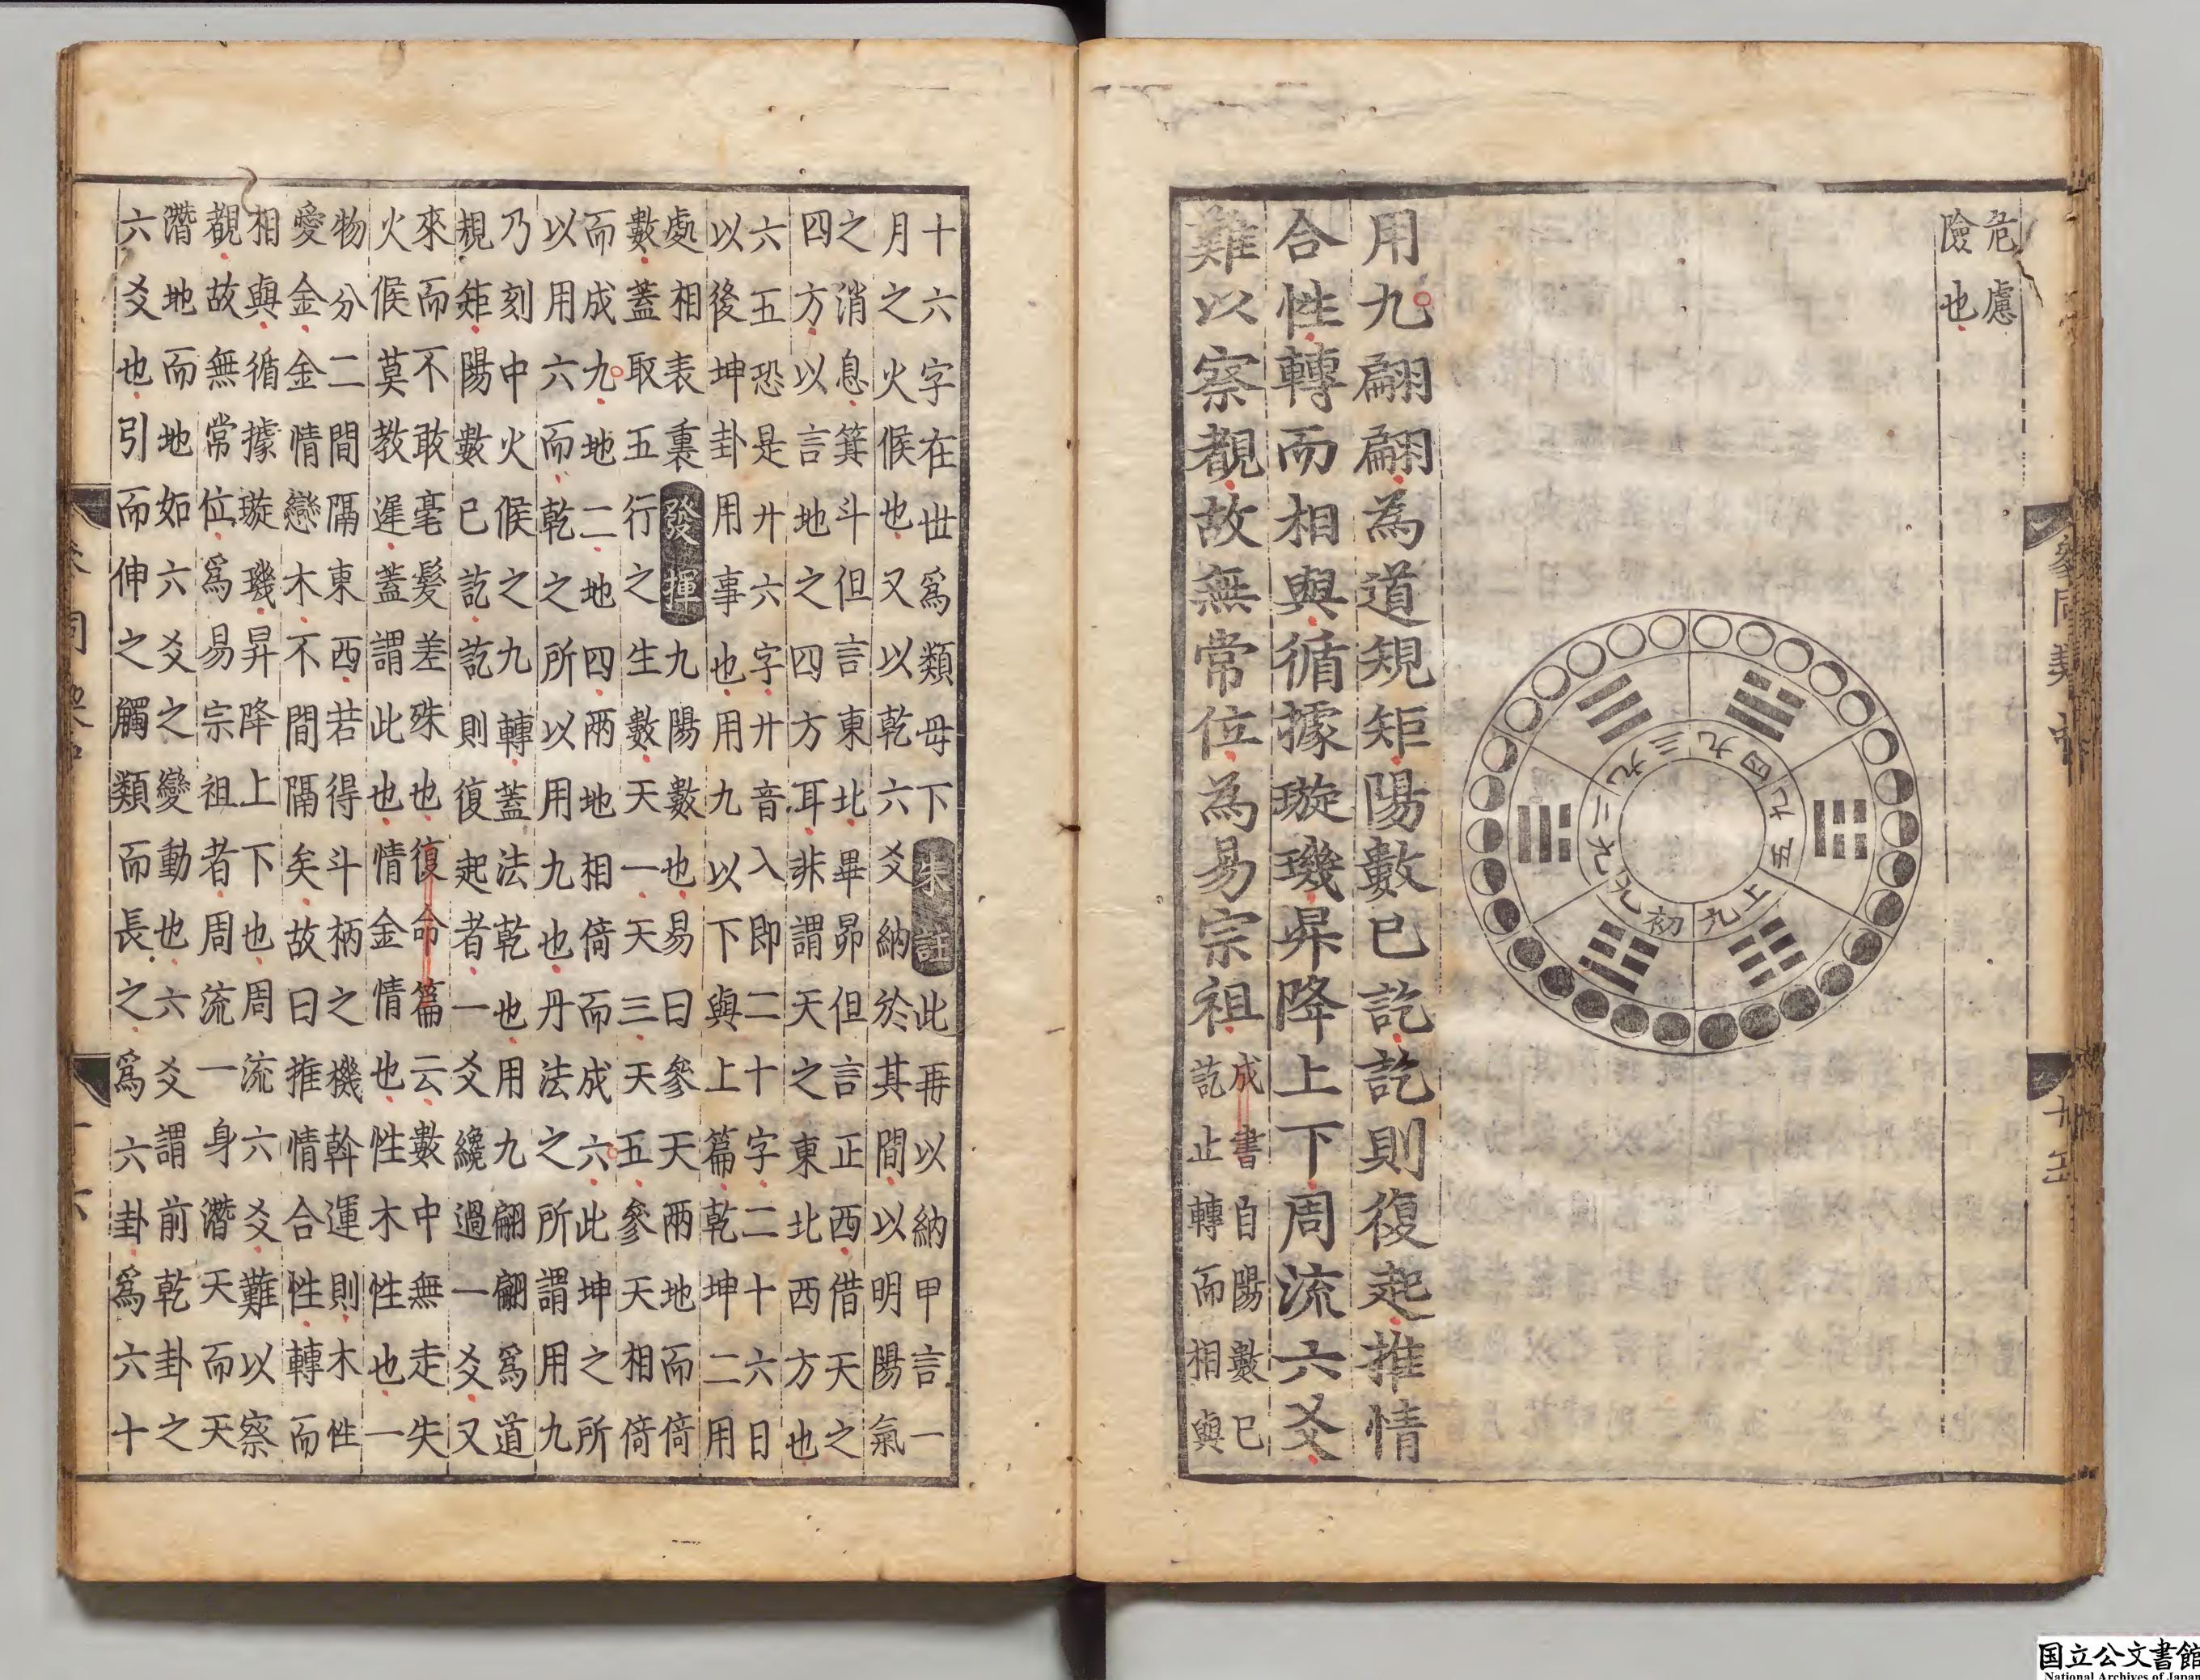 危慮
險也
初九
九二
九三
九四
九五
上九
用九翩翩為道規矩陽數已訖訖則復起推情
合性轉而相與循據璇璣昇降上下周流六爻
難以察覩故無常位為易宗祖
成書自陽數已
訖止轉而相與
十六字在世爲類母下朱註此再以納甲言一
月之火候也又以乾六爻納於其間以明陽氣
之消息箕斗但言東北畢昴但言正西借天之
四方以言地之四方耳非謂天之東北西方也
六五恐是廾六字廾音入即二十字二十六日
以後坤卦用事也用九以下與上篇乾坤二用
處相表裏發揮九陽數也易曰參天兩地而倚
數蓋取五行之生數天一天三天五參天相倚
而成九地二地四兩地相倚而成六此坤之所
以用六而乾之所以用九也丹法之所謂用九
乃刻中火候之九轉蓋法乾也用九翩翩爲道
規矩陽數已訖訖則復起者一爻纔過一爻又
來而不敢毫髮差殊也復命篇云數中無走失
火候莫教遲蓋謂此也情金情也性木性也一
物分二間隔東西若得斗柄之機斡運則木性
愛金金情戀木不間隔矣故曰推情合性轉而
相與循據璇璣昇降上下也周流六爻難以察
覩故無常位爲易宗祖者周流一身潛天而天
潛地而地如六爻之變動也六爻謂前乾卦之
六爻也引而伸之觸類而長之爲六卦爲六十
国立公文書館
National Archives of Japan